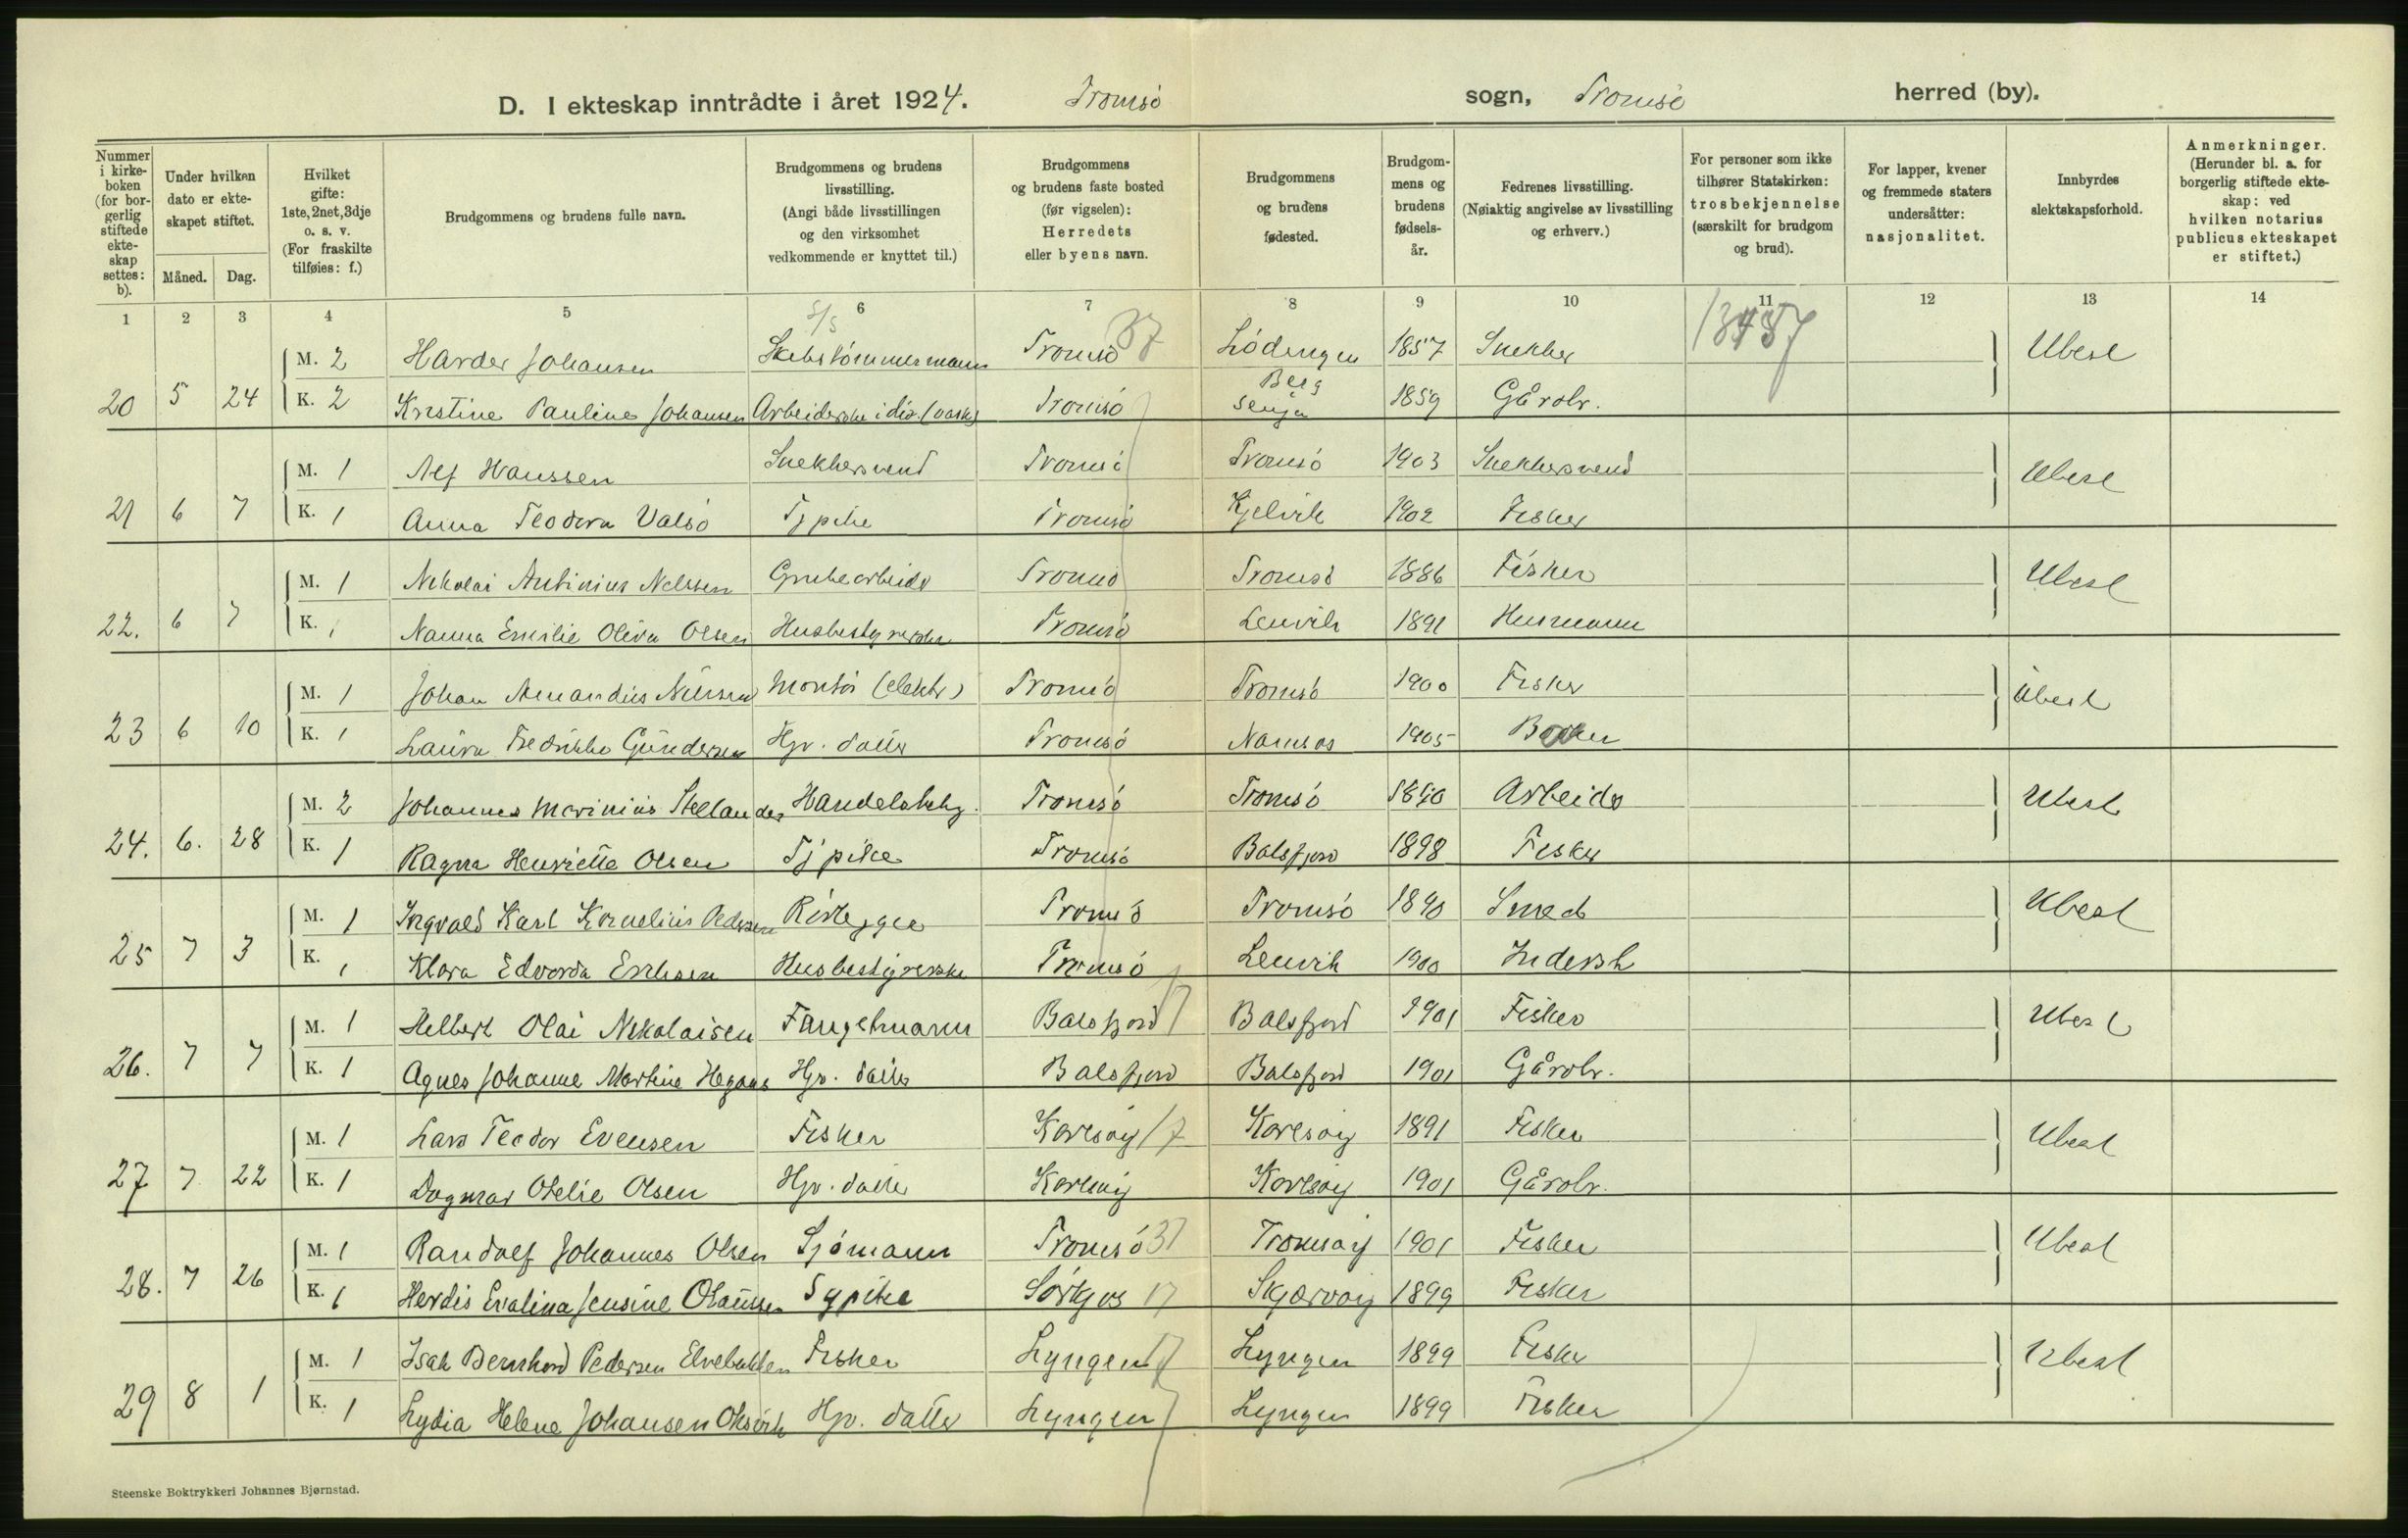 D. I ekteskap inntrådte i året 1924. Tromsö sogn, Tromsö herred (by).
Nummer i kirke-boken (for bor-gerlig stiftede ekte-skap settes: b).
Under hvilken dato er ekte-skapet stiftet.
Måned. Dag.
Hvilket gifte: 1ste, 2net, 3dje o. s. v. (For fraskilte tilføies: f.)
Brudgommens og brudens fulle navn.
Brudgommens og brudens livsstilling. (Angi både livsstillingen og den virksomhet vedkommende er knyttet til.)
Brudgommens og brudens faste bosted (før vigselen): Herredets eller byens navn.
Brudgommens og brudens fødested.
Brudgom-mens og brudens fødsels-år.
Fedrenes livsstilling. (Nøiaktig angivelse av livsstilling og erhverv.)
For personer som ikke tilhører Statskirken: trosbekjennelse (særskilt for brudgom og brud).
For lapper, kvener og fremmede staters undersåtter: nasjonalitet.
Innbyrdes slektskapsforhold.
Anmerkninger. (Herunder bl. a. for borgerlig stiftede ekte-skap: ved hvilken notarius publicus ekteskapet er stiftet.)
1 2 3 4 5 6 7 8 9 10 11 12 13 14
M. 2 Harder Johansen Skibstömmermann Tromsö 37 Lödingen 1857 Snekker Ubesl
20 5 24 K. 2 Kristine Pauline Johansen Arbeiderske i div. (vask) Tromsö Berg Senja 1859 Gårdbr.
M. 1 Alf Hanssen Snekkersvend Tromsö Tromsö 1903 Snekkersvend Ubesl
21 6 7 K. 1 Anna Teodora Valsö Tjpike Tromsö Kjelvik 1902 Fisker
M. 1 Nikolai Antinius Nilssen Grubearbeider Tromsö Tromsö 1886 Fisker Ubesl
22. 6 7 K. 1 Nanna Emilie Oliva Olsen Husbestyrerske Tromsö Lenvik 1891 Husmann
M. 1 Johan Amandus Nilssen Montör (elektr) Tromsö Tromsö 1900 Fisker Ubesl
23 6 10 K. 1 Laura Fredrikke Gundersen Hjv. datter Tromsö Namsos 1905
M. 2 Johannes Marinius Stellander Handelsbetj. Tromsö Tromsö 1890 Arbeider Ubesl
24. 6. 28 K. 1 Ragna Henriette Olsen Tjpike Tromsö Balsfjord 1898 Fisker
M. 1 Ingvald Karl Kornelius Pedersen Tromsö Tromsö 1890 Smed Ubesl
25 7 3 K. 1 Klara Edvarda Erikson Husbestyrerske Tromsö Lenvik 1900 Indersk
M. 1 Helbert Olai Nikolaisen Fangstmann Balsfjord 17 Balsfjord 1901 Fisker Ubesl
26. 7 7 K. 1 Agnes Johanne Martine Hegaas Hjv. datter Balsfjord Balsfjord 1901 Gårdbr.
M. 1 Lars Teodor Evensen Fisker Karlsöy 17 Karlsöy 1891 Fisker Ubesl
27 7 22 K. 1 Dagmar Otelie Olsen Hjv. datter Karlsöy Karlsöy 1901 Gårdbr.
M. 1 Randolf Johannes Olsen Sjömann Tromsö 37 Tromsöy 1901 Fisker Ubesl
28. 7 26 K. 1 Herdis Evalina Jensine Olaussen Sypike Sörkjos 17 Skjærvöy 1899 Fisker
M. 1 Isak Bernhard Pedersen Elvebakken Fisker Lyngen 17 Lyngen 1899 Fisker Ubesl
29 8 1 K. 1 Lydia Helene Johansen Oksvik Hjv. datter Lyngen Lyngen 1899 Fisker
Steenske Boktrykkeri Johannes Bjørnstad.